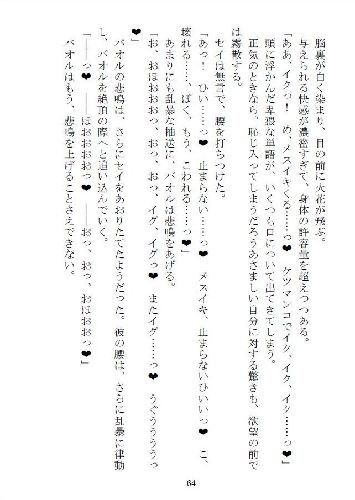 脳裏が白く染まり、目の前に火花が飛ぶ。
与えられる快感が濃密すぎて、身体の許容量を超えつつある。
「ああ、イクっ！　め、メスイキくる……っ♥　ケツマンコでイク、イク、イク……っ♥」
頭に浮かんだ卑猥な単語が、いくつも口について出てきてしまう。
正気のときなら、恥じ入ってしまうだろうあさましい自分に対する驚きも、欲望の前で
は霧散する。
セイは無言で、腰を打ちつけた。
「あっ！　ひい……っ♥　止まらない……っ♥　メスイキ、止まらないひいいっ♥　こ、
壊れる……、ぼく、もう、こわれる……っ♥」
あまりにも乱暴な抽送に、バオルは悲鳴をあげる。
「お、おほおおおっ♥　お、おっ、イグ、イグっ♥　またイグ……っ♥　うぐううううっ
っ♥」
バオルの悲鳴は、さらにセイをあおりたてたようだった。彼の腰は、さらに乱暴に律動
し、バオルを絶頂の際へと追い込んでいく。
「――っ♥　――ほおおおおっ♥　――おっ、おっ、おほおおっ♥」
バオルはもう、悲鳴を上げることさえできない。
64